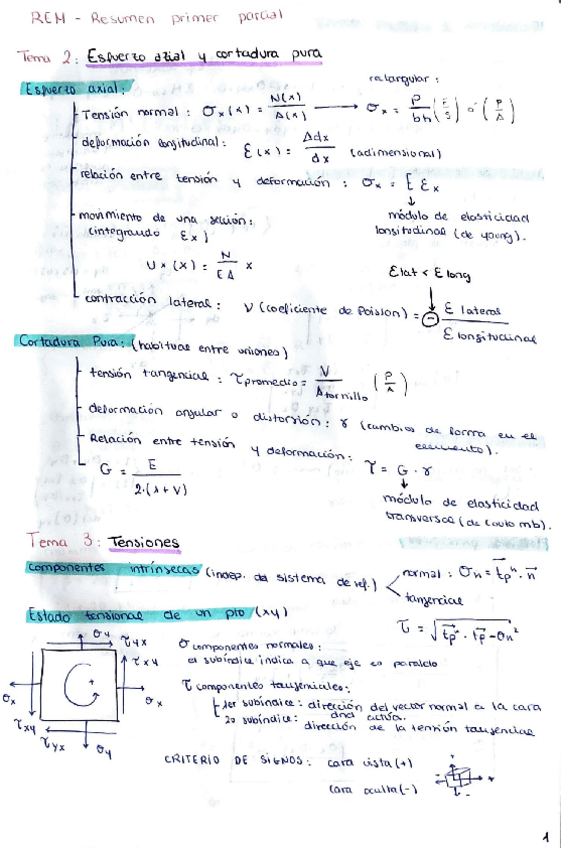 REM - Resumen primer parcial
Tema 2: Esfuerzo axial y cortadura pura
Esfuerzo axial:
rectangular:
Tensión normal: σx(x) = N(x)/A(x) → σx = P/bh (F/S) ó (P/A)
deformación longitudinal: ε(x) = Δdx/dx (adimensional)
relación entre tensión y deformación: σx = E εx
↓
módulo de elasticidad
longitudinal (de young).
movimiento de una sección:
(integrando εx)
Ux(x) = N/EA x
εlat < εlong
contracción lateral: ν (coeficiente de Poission) = ⊖ ε lateral / ε longitudinal
Cortadura Pura: (habitual entre uniones)
tensión tangencial: τpromedio = V/Atornillo (P/A)
deformación angular o distorsión: γ (cambios de forma en el
elemento).
Relación entre tensión y deformación: τ = G·γ
G = E/2·(1+ν)
↓
módulo de elasticidad
transversal (de coulomb).
Tema 3: Tensiones
componentes intrínsecas (indep. del sistema de ref.)
normal: σn = tpⁿ · n
tangencial
τ = √(tp · tp - σn²)
Estado tensional de un pto (xy)
σy τyx
τxy
σx σx
τxy
τyx σy
σ componentes normales:
el subíndice indica a que eje es paralelo
τ componentes tangenciales:
1er subíndice: dirección del vector normal a la cara
dnd actúa.
2o subíndice: dirección de la tensión tangencial
CRITERIO DE SIGNOS: cara vista (+)
cara oculta (-)
1